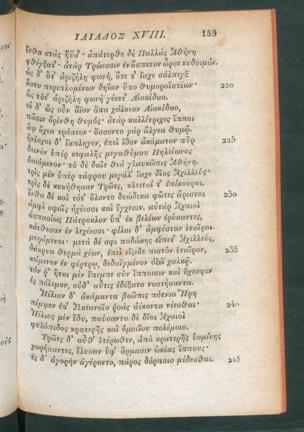 ΙΛΙΑΔΟΣ XVIII. 159
ἔνθα στὰς ἤϋσ'· ἀπάτερθε δὲ Παλλὰς Ἀθήνη
φθέγξατ'· ἀτὰρ Τρώεσσιν ἐν ἄσπετον ὦρσε κυδοιμόν.
ὡς δ' ὅτ' ἀριζήλη φωνή, ὅτε τ' ἴαχε σάλπιγξ
ἄστυ περιπλομένων δηΐων ὕπο θυμοραϊστέων· 220
ὣς τότ' ἀριζήλη φωνὴ γένετ' Αἰακίδαο.
οἱ δ' ὡς οὖν ἄϊον ὄπα χάλκεον Αἰακίδαο,
πᾶσιν ὀρίνθη θυμός· ἀτὰρ καλλίτριχες ἵπποι
ἂψ ὄχεα τρόπεον· ὄσσοντο γὰρ ἄλγεα θυμῷ.
ἡνίοχοι δ' ἔκπληγεν, ἐπεὶ ἴδον ἀκάματον πῦρ 225
δεινὸν ὑπὲρ κεφαλῆς μεγαθύμου Πηλείωνος
δαιόμενον· τὸ δὲ δαῖε θεὰ γλαυκῶπις Ἀθήνη.
τρὶς μὲν ὑπὲρ τάφρου μεγάλ' ἴαχε δῖος Ἀχιλλεύς·
τρὶς δὲ κυκήθησαν Τρῶες, κλειτοί τ' ἐπίκουροι.
ἔνθα δὲ καὶ τότ' ὄλοντο δυώδεκα φῶτες ἄριστοι 230
ἀμφὶ σφοῖς ὀχέεσσι καὶ ἔγχεσιν. αὐτὰρ Ἀχαιοὶ
ἀσπασίως Πάτροκλον ὑπ' ἐκ βελέων ἐρύσαντες,
κάτθεσαν ἐν λεχέεσσι· φίλοι δ' ἀμφέσταν ἑταῖροι
μυρόμενοι· μετὰ δέ σφι ποδώκης εἵπετ' Ἀχιλλεύς,
δάκρυα θερμὰ χέων, ἐπεὶ εἴσιδε πιστὸν ἑταῖρον, 235
κείμενον ἐν φέρτρῳ, δεδαϊγμένον ὀξέϊ χαλκῷ.
τόν ῥ' ἤτοι μὲν ἔπεμπε σὺν ἵπποισιν καὶ ὄχεσφιν
ἐς πόλεμον, οὐδ' αὖτις ἐδέξατο νοστήσαντα.
Ἠέλιον δ' ἀκάμαντα βοῶπις πότνια Ἥρη
πέμψεν ἐπ' Ὠκεανοῖο ῥοὰς ἀέκοντα νέεσθαι· 240
Ἠέλιος μὲν ἔδυ, παύσαντο δὲ δῖοι Ἀχαιοὶ
φυλόπιδος κρατερῆς καὶ ὁμοιΐου πολέμοιο.
Τρῶες δ' αὖθ' ἑτέρωθεν, ἀπὸ κρατερῆς ὑσμίνης
χωρήσαντες, ἔλυσαν ὑφ' ἅρμασιν ὠκέας ἵππους·
ἐς δ' ἀγορὴν ἀγέροντο, πάρος δόρποιο μέδεσθαι. 245